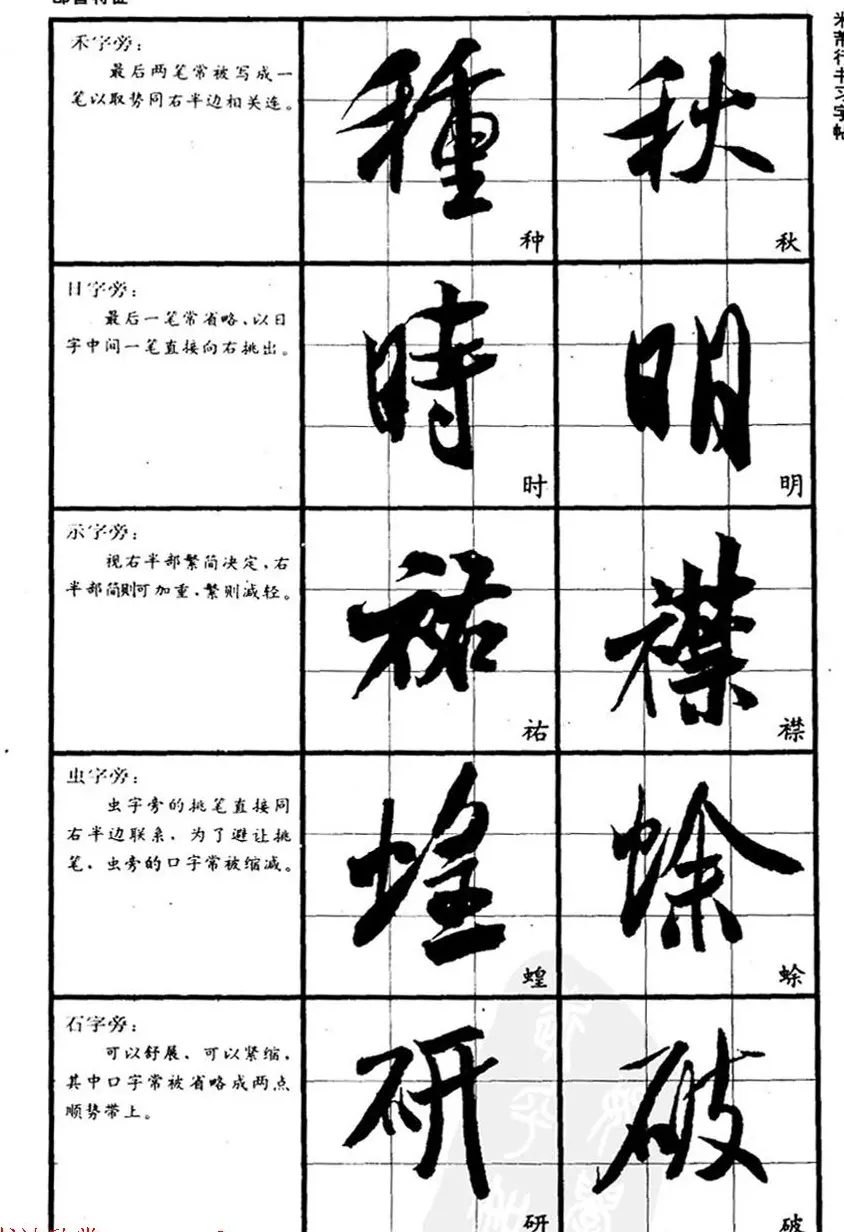 部首特征
米芾行书习字帖
禾字旁：
最后两笔常被写成一
笔以取势同右半边相关连。
種
种
秋
秋
日字旁：
最后一笔常省略，以日
字中间一笔直接向右挑出。
時
时
明
明
示字旁：
视右半部繁简决定，右
半部简则可加重，繁则减轻。
祐
祐
襟
襟
虫字旁：
虫字旁的挑笔直接同
右半边联系，为了避让挑
笔，虫旁的口字常被缩减。
蝗
蝗
蜍
蜍
石字旁：
可以舒展，可以紧缩，
其中口字常被省略成两点
顺势带上。
研
研
破
破